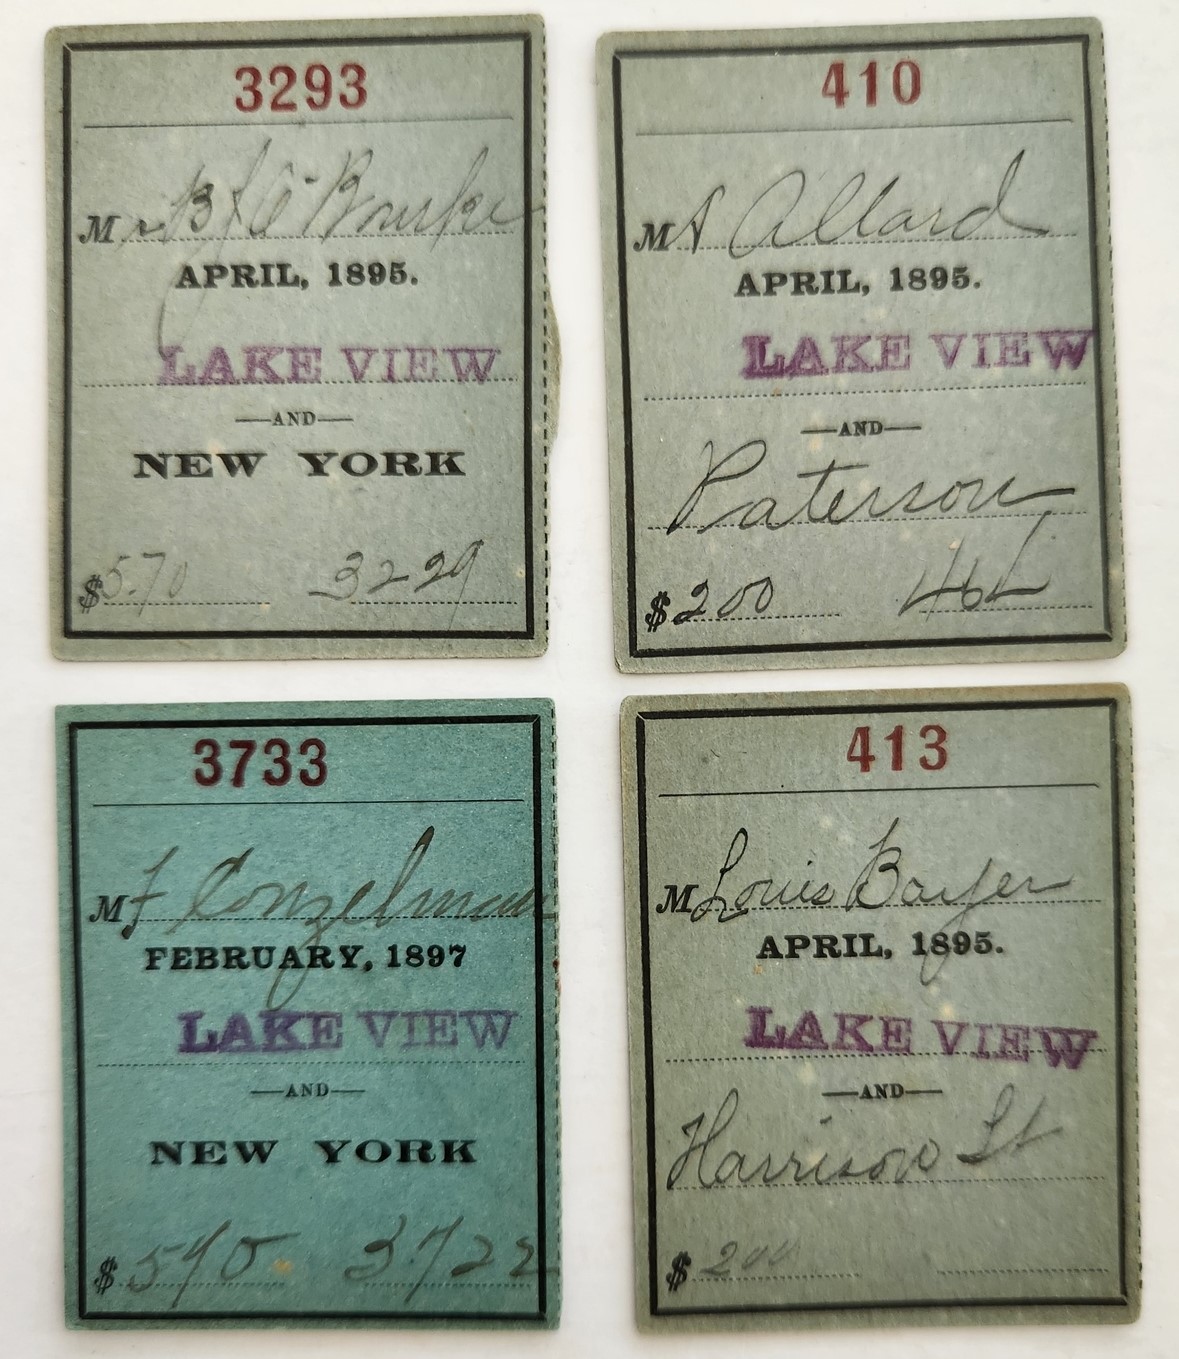 3293
Mr B J O'Bourke
APRIL, 1895.
LAKE VIEW
—AND—
NEW YORK
$5.70 3229
410
M A Allard
APRIL, 1895.
LAKE VIEW
—AND—
Paterson
$200
3733
M F Conzelman
FEBRUARY, 1897
LAKE VIEW
—AND—
NEW YORK
$570. 3722
413
M Louis Bayer
APRIL, 1895.
LAKE VIEW
—AND—
Harrison St
$200